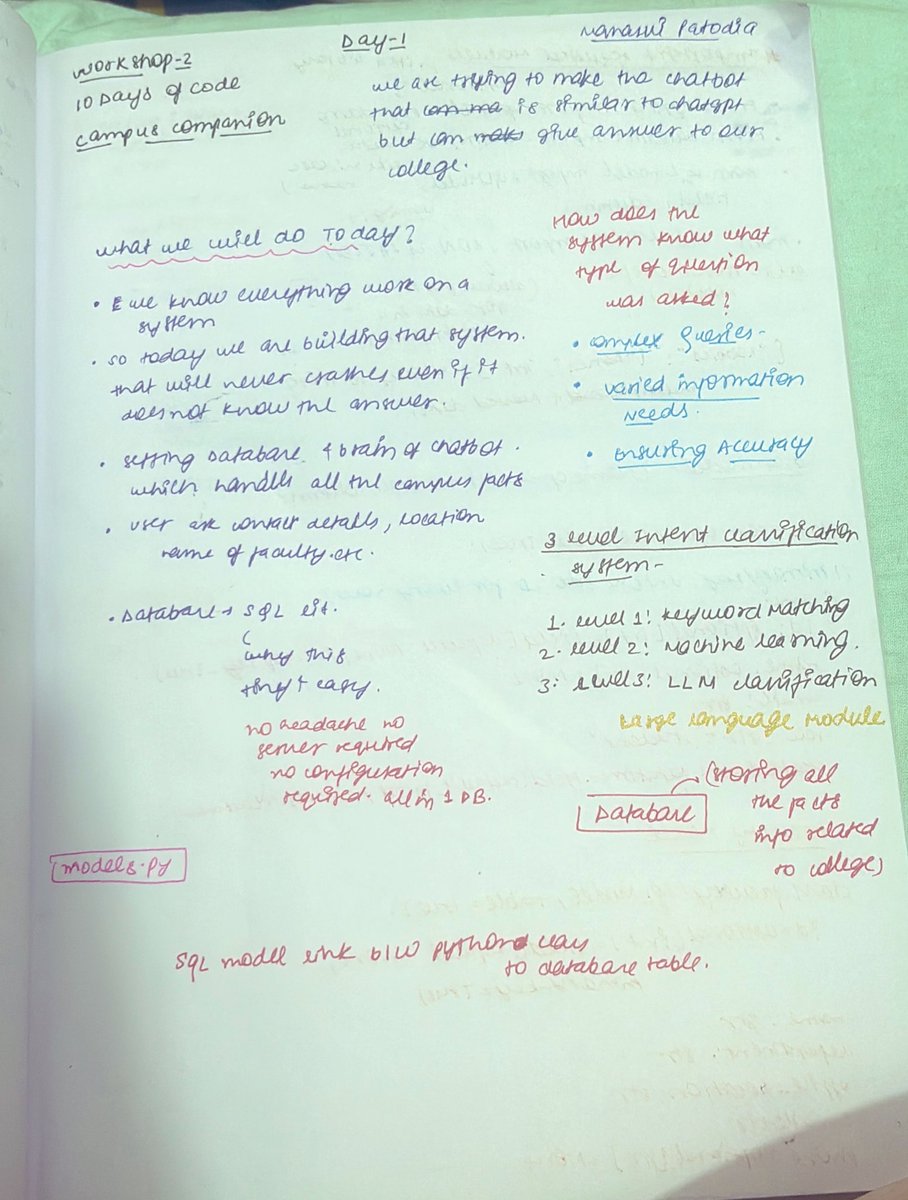 Day-1
Workshop-2
10 Days of code
campus companion
we are trying to make the chatbot
that is similar to chatgpt
but can give answer to our
college.
what we will do Today?
• we know everything work on a
system
• so today we are building that system.
that will never crashes even if it
does not know the answer.
• setting Database & brain of chatbot.
which handles all the campus facts
• user are contact details, location
name of faculty. etc.
• Database → SQL
why this
tiny + easy.
no headache no
server required
no configuration
required. all in 1 DB.
How does the
system know what
type of question
was asked?
• complex Queries -
• varied information
Needs.
• Ensuring Accuracy
3 level Intent classification
system -
1. level 1: Keyword Matching
2. level 2: Machine learning.
3: level 3: LLM classification
Large language Module
Database
(storing all
the facts
info related
to college)
models.py
SQL model link b/w python
to database table.